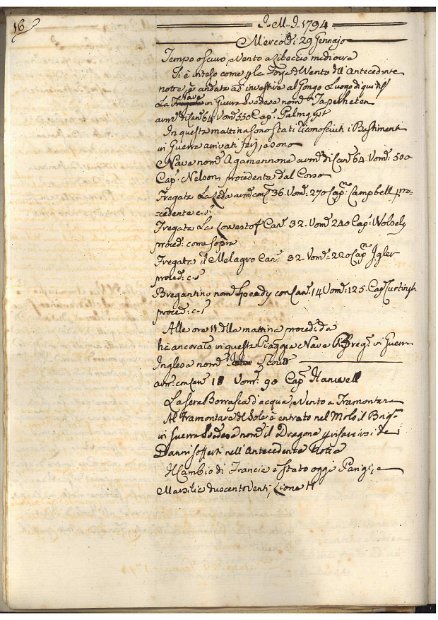 16
J. M. J. 1794
Mercoldi 29 Gennajo
Tempo oscuro, e Vento a Libeccio mediocre
Si è inteso come p. la forza del Vento dell'Antecedente
notte è andata ad investire al Gorgo Luogo di
La Nave in Guerra Svedese nom.ta Tapelheten
arm. di Can. 64 Vom. 550 Cap.
In questa mattina sono stati i Bastimenti
in Guerra arrivati jeri, e sono
Nave nom. Agamennone arm. di Can. 64 Vom. 500
Cap. Nelson, procedente dal Corso
Fregata La con 36. Vom. 270 Cap. Campbell, pro-
cedente c.s.
Fregata La Lowestof Can. 32. Vom. 240 Cap.
proced. come sopra
Fregata il Melagro Can. 32. Vom. 220 Cap.
proced. c.s.
Bregantino nom. Speedy con Can. 14 Vom. 125. Cap.
proce. c.s.
Alle ore 11 della mattina proced. da
ha ancorato in questa Piaggia Nave in Guerra
Inglese nom. Scout
arm. con Can. 18 Vom. 90 Cap. Hanwell
La sera Borrasca d'acqua, e Vento a Tramontana
Al Tramontare del Sole è entrato nel Molo il Brig.
in Guerra Svedese nom. il Dragone p. risarcire i
Danni sofferti nell'Antecedente Notte
Il Cambio di Francia è stato oggi Parigi, e
Marsilia duecentoventi, Lione 14